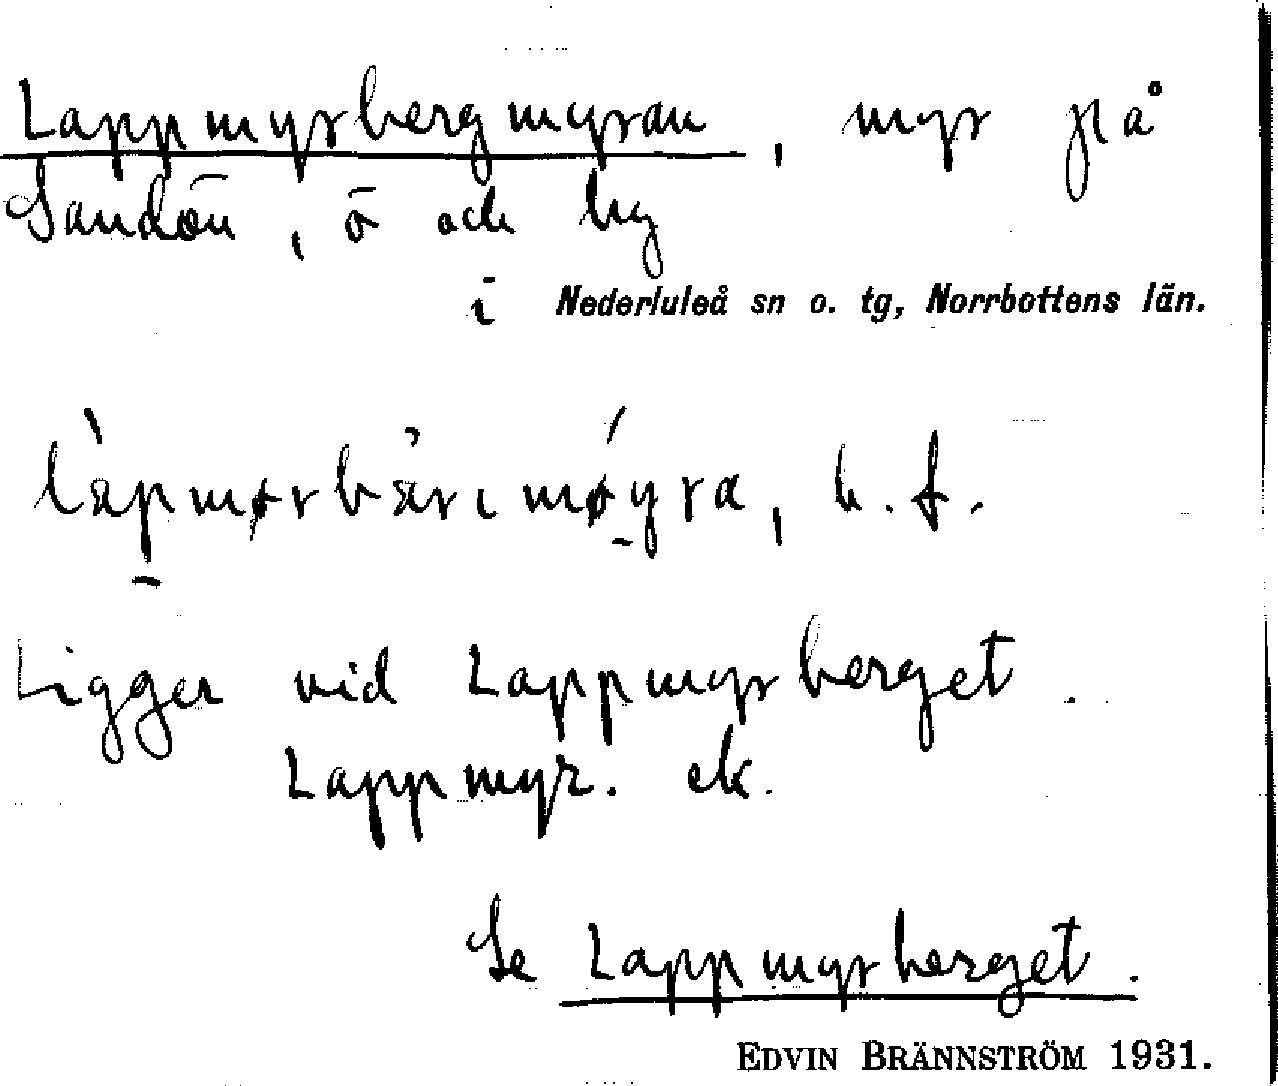 Lappmyrbergmyran, myr på
Sandön, ö och by
i Nederluleå sn o. tg, Norrbottens län.
b. f.
Ligger vid Lappmyrberget.
Lappmyr. ek.
Se Lappmyrberget.
EDVIN BRÄNNSTRÖM 1931.